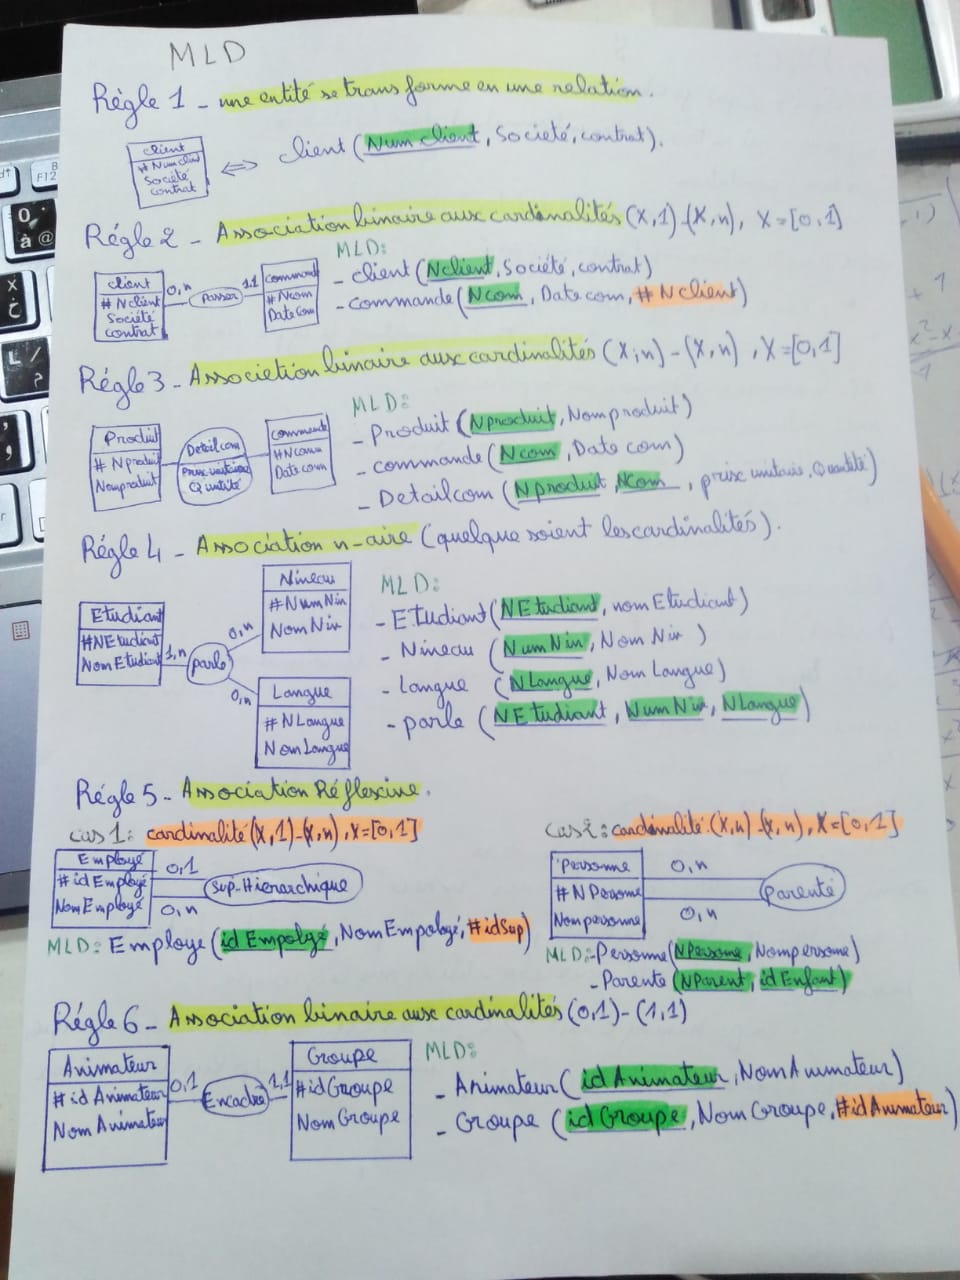 MLD
Règle 1 - une entité se transforme en une relation.
client
# Num client
Société
contrat
⇔ client (Num client, Société, contrat).
Régle 2 - Association binaire aux cardinalités (X,1)-(X,n), X=[0,1]
client
# Nclient
Société
contrat
0,n
Passer
1,1
commande
# Ncom
Date com
MLD:
- client (Nclient, Société, contrat)
- commande (Ncom, Date com, #Nclient)
Régle 3 - Association binaire aux cardinalités (X,n)-(X,n), X=[0,1]
Produit
# Nproduit
Nomproduit
Detailcom
Prix unitaire
Quntité
commande
#Ncom
Date com
MLD:
- Produit (Nproduit, Nomproduit)
- commande (Ncom, Date com)
- Detailcom (Nproduit, Ncom, prix unitaire, Quantité)
Régle 4 - Association n-aire (quelque soient les cardinalités).
Etudiant
#NEtudiant
NomEtudiant
1,n
parle
0,n
Niveau
#NumNiv
NomNiv
0,n
Langue
# NLangue
NomLangue
MLD:
- Etudiant (NEtudiant, nomEtudiant)
- Niveau (NumNiv, NomNiv)
- Langue (NLangue, NomLangue)
- parle (NEtudiant, NumNiv, NLangue)
Régle 5 - Association Réflexive.
cas 1: cardinalité (X,1)-(X,n), X=[0,1]
Employé
#idEmployé
NomEmployé
0,1
0,n
Sup.Hierarchique
MLD: Employe (idEmpolyé, NomEmpolyé, #idSup)
cas 2: cardinalité (X,n)-(X,n), X=[0,1]
Personne
# NPersonne
Nompersonne
0,n
0,n
Parenté
MLD:-Personne (NPersonne, Nompersonne)
-Parente (NParent, idEnfant)
Régle 6 - Association binaire aux cardinalités (0,1)-(1,1)
Animateur
# idAnimateur
NomAnimateur
0,1
Encadre
1,1
Groupe
#idGroupe
NomGroupe
MLD:
- Animateur (idAnimateur, NomAnimateur)
- Groupe (idGroupe, NomGroupe, #idAnimateur)